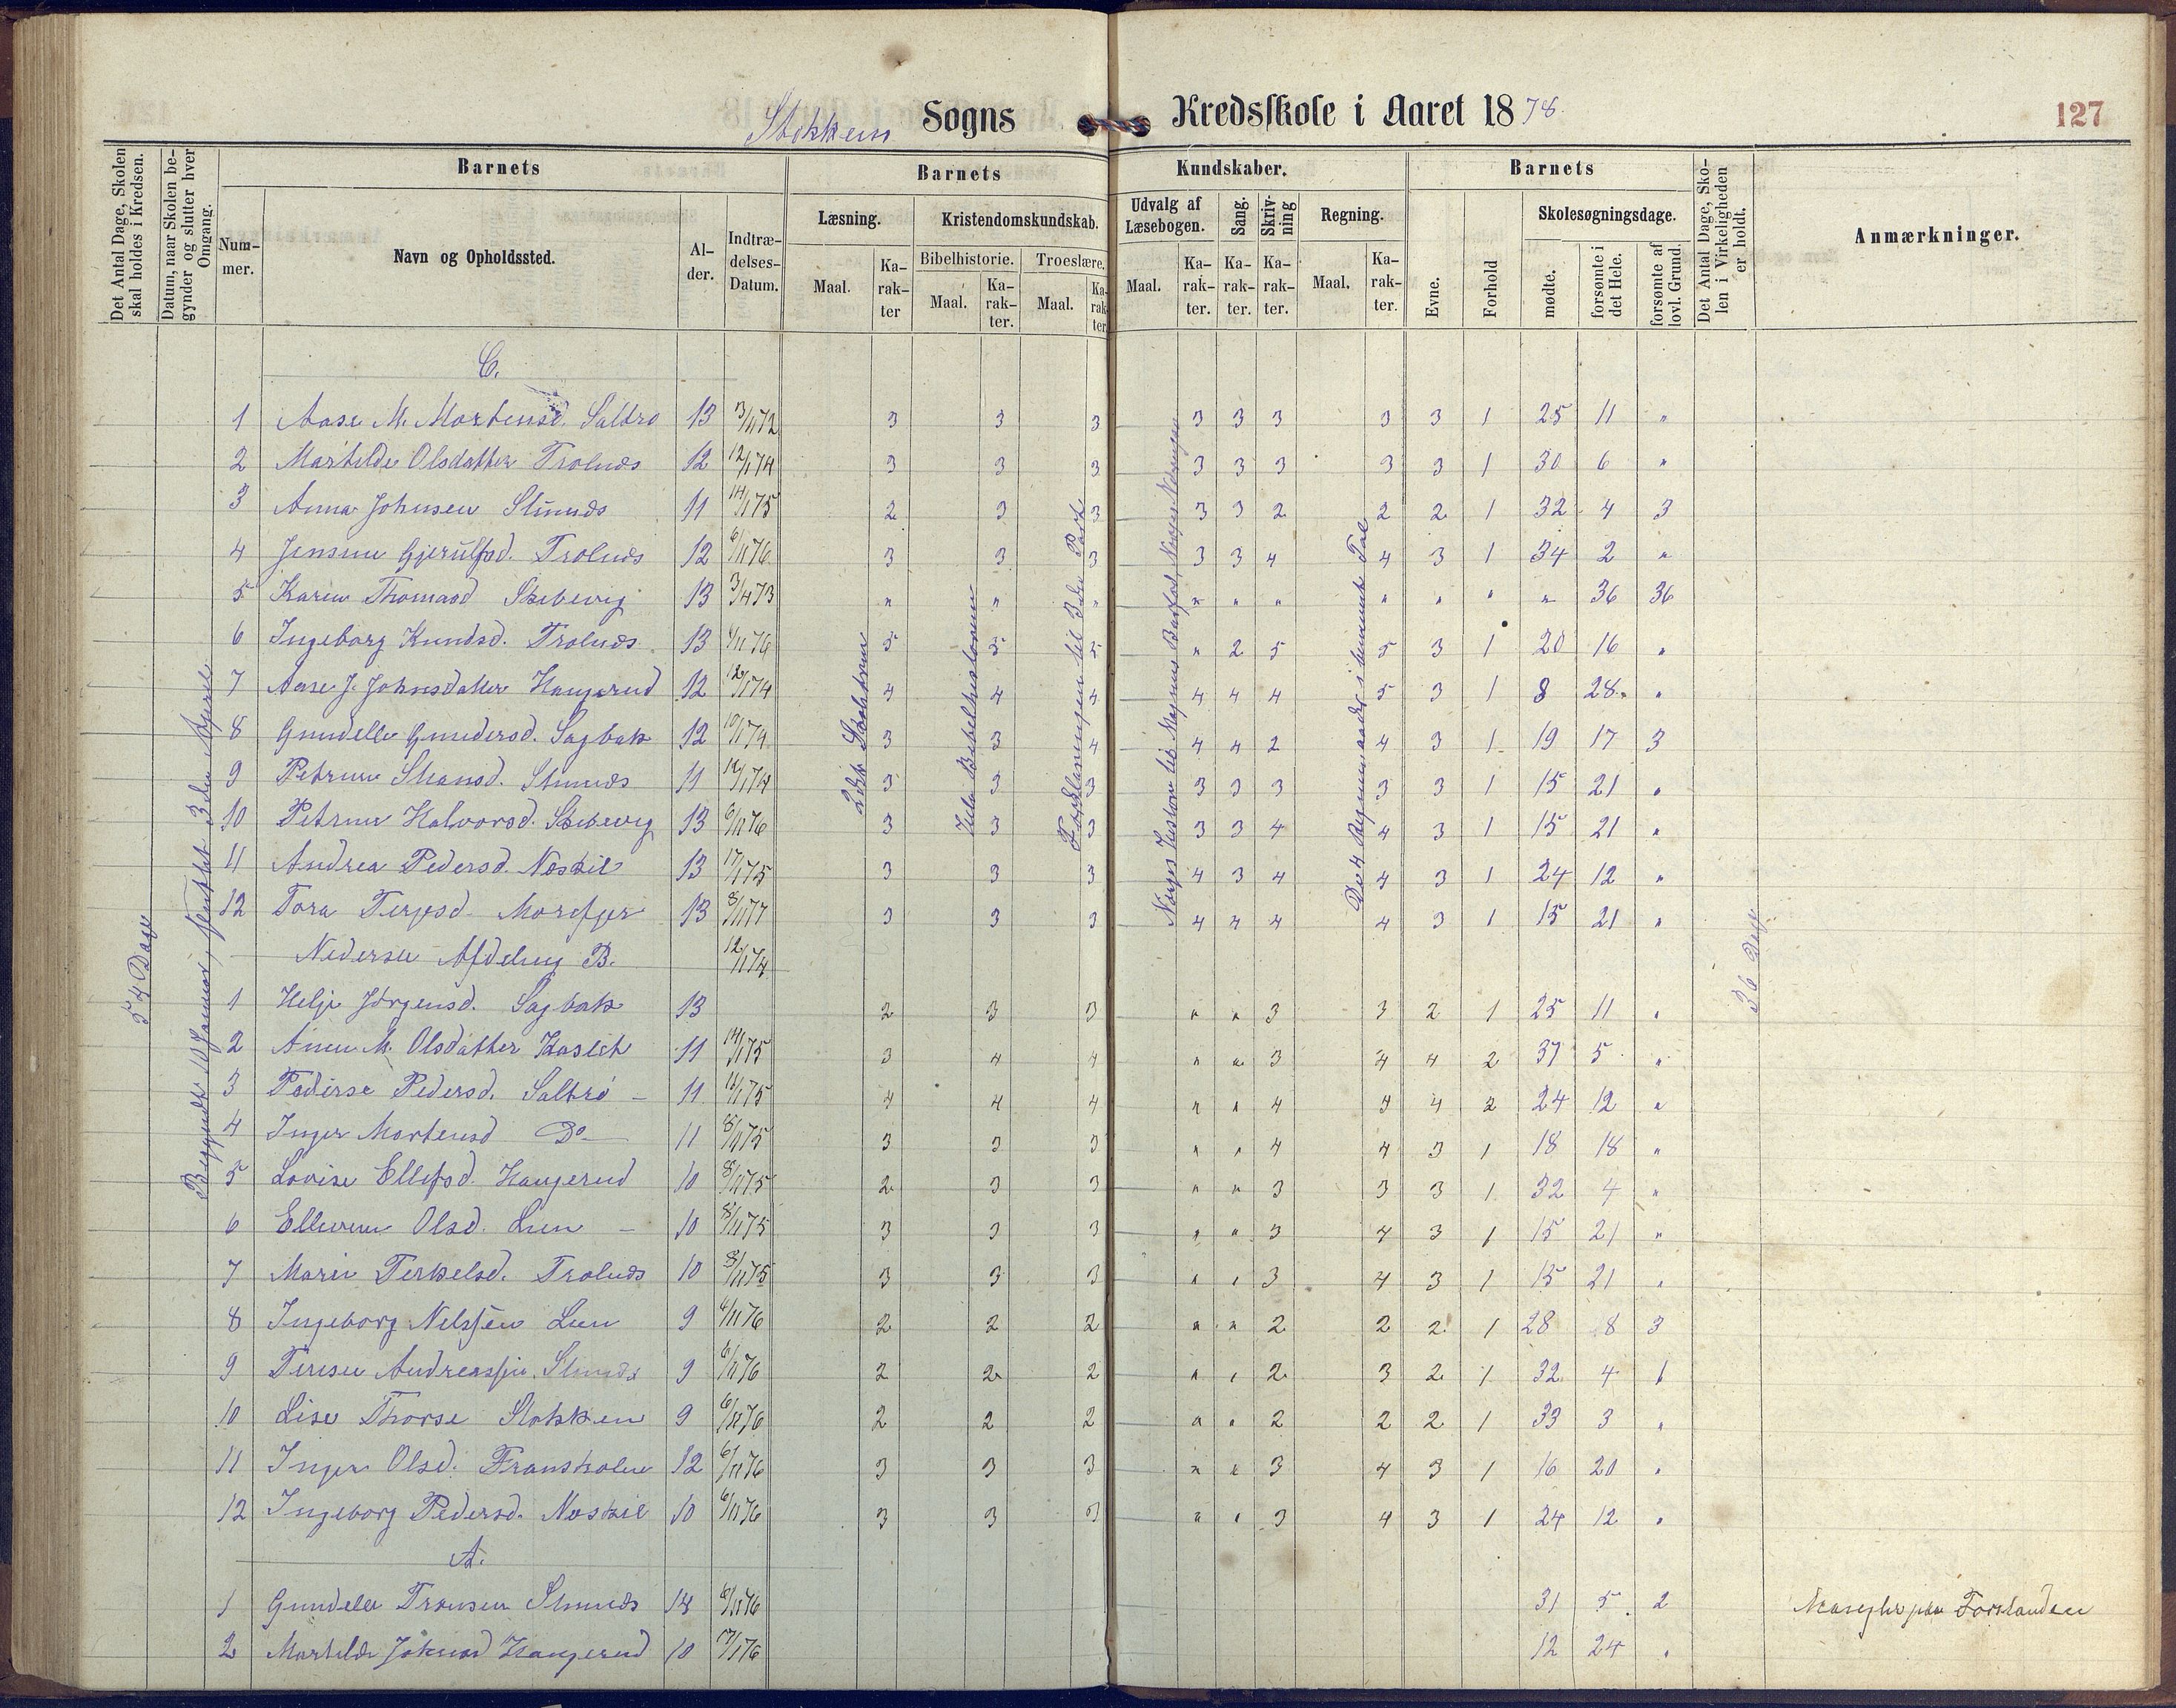 Stokken Sogns Kredsskole i Aaret 1878. 127
Det Antal Dage, Skolen skal holdes i Kredsen.
Datum, naar Skolen begynder og slutter hver Omgang.
Barnets
Nummer.
Navn og Opholdssted.
Alder.
Indtrædelses-Datum.
Barnets Kundskaber.
Læsning.
Maal. Karakter
Kristendomskundskab.
Bibelhistorie.
Maal. Karakter.
Troeslære.
Maal. Karakter
Udvalg af Læsebogen.
Maal. Karakter.
Sang. Karakter.
Skrivning Karakter.
Regning.
Maal. Karakter.
Barnets
Evne.
Forhold
Skolesøgningsdage.
mødte.
forsømte i det Hele.
forsømte af lovl. Grund.
Det Antal Dage, Skolen i Virkeligheden er holdt.
Anmærkninger.
54 Dage
Begyndt 10 Januar, sluttet 3die April
2det Skoletrin
Hele Bibelhistorien
Forklaringen til 3die Part
De 4 Regningsarter i benævnte Tal
36 Dage
C.
1 Aase M. Mortensd. Saltrø 13 3/11 72 3 3 3 3 3 3 3 3 1 25 11 "
2 Marhilde Olsdatter Trolnæs 12 12/1 74 3 3 3 3 3 3 3 3 1 30 6 "
3 Anna Johnsen Stinnæs 11 14/1 75 2 3 3 3 3 2 2 2 1 32 4 3
4 Jensine Gjerulfsd. Trolnæs 12 6/11 76 3 3 3 3 3 4 4 3 1 34 2 "
5 Karen Thomasd Skibevig 13 3/4 73 " " " " " " " " " " 36 36
6 Ingeborg Knudsd. Trolnæs 13 4/11 76 5 5 5 " 2 5 5 3 1 20 16 "
7 Aase J. Johnsdatter Haugerud 12 12/1 74 4 4 4 4 4 4 5 3 1 8 28 "
8 Gundelle Gundersd. Sagbak 12 10/1 74 3 3 4 4 4 2 4 3 1 19 17 3
9 Petrine Skansd. Stinnæs 11 12/1 74 3 3 3 3 3 3 3 3 1 15 21 "
10 Petrine Halvorsd. Skibevig 13 6/11 76 3 3 3 3 3 4 4 3 1 15 21 "
11 Andrea Pedersd. Næskil 13 17/1 75 3 3 3 4 3 4 4 3 1 24 12 "
12 Tora Terjesd. Morefjer 13 8/11 77 3 3 3 4 4 4 4 3 1 15 21 "
Nederste Afdeling B. 12/1 74
1 Helje Jørgensd. Sagbak 13 2 3 3 " " 3 3 2 1 25 11 "
2 Anne M. Olsdatter 11 14/1 75 3 4 4 " " 3 4 4 2 31 5 "
3 Pederse Pedersd. Saltrø - 11 11/1 75 4 4 4 " " 4 4 4 2 24 12 "
4 Inger Mortensd Do - 11 8/11 75 3 3 3 " " 4 4 3 1 18 18 "
5 Lovise Ellefsd. Haugerud 10 8/11 75 2 3 3 " " 3 3 3 1 32 4 "
6 Ellevine Olsd. Lien - 10 8/11 75 3 3 3 " " 3 4 3 1 15 21 "
7 Maren Terkelsd. Trolnæs 10 8/11 75 3 3 3 " " 3 4 3 1 15 21 "
8 Ingeborg Nilssen Lien 9 4/11 76 2 2 2 " " 2 2 2 1 28 8 3
9 Terese Andreassen Stinnæs 9 6/11 76 2 2 2 " " 2 3 2 1 32 4 1
10 Lise Thorse Stokken 9 6/11 76 2 2 2 " " 2 2 2 1 33 3 "
11 Inger Olsd. Fransholm 12 6/11 76 3 3 3 " " 3 4 3 1 16 20 "
12 Ingeborg Pedersd. Næskil 10 6/11 76 3 3 3 " " 3 4 3 1 24 12 "
A.
1 Gundelle Transen Stinnæs 14 6/11 76 31 5 2 Mangler paa Forstanden
2 Marhilde Johnsd Haugerud 10 17/1 76 12 24 "